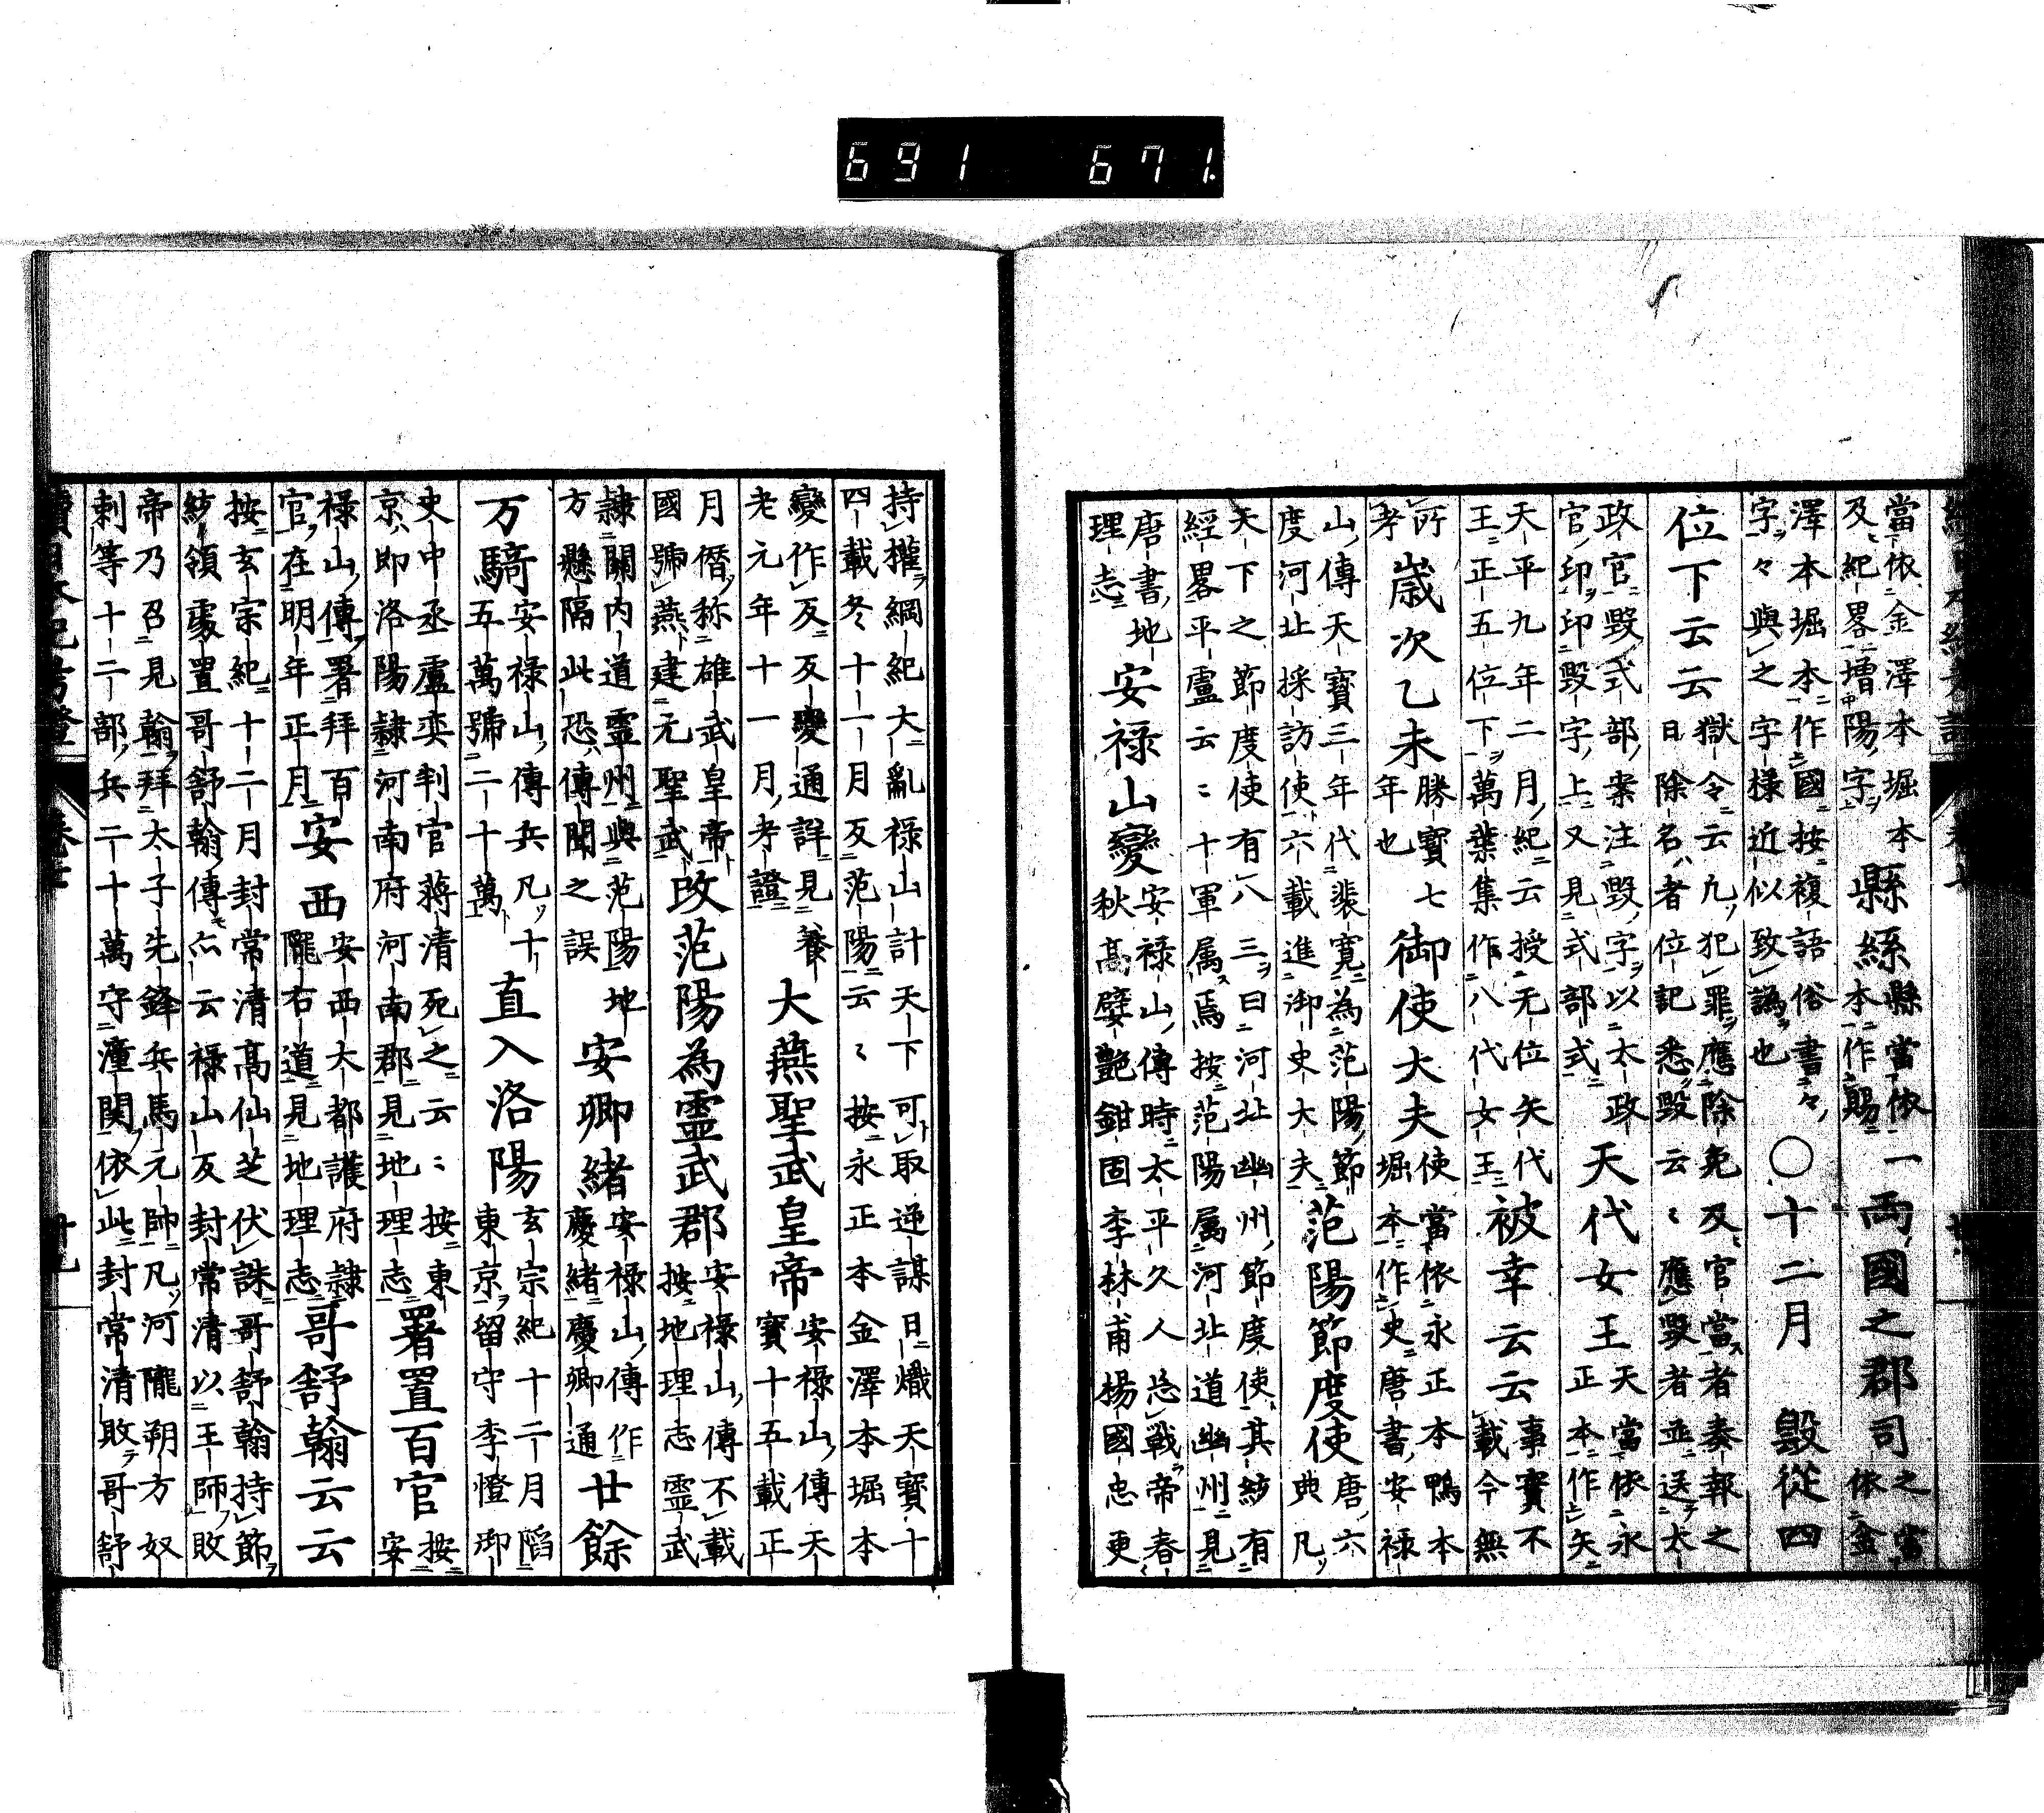 691 671.
當依金澤本堀本
及紀畧增陽字
縣
縣當依一
本作賜
兩國之郡司
之當
依金
澤本堀本作國按複語俗書々
字々與之字樣近似致譌也
○十二月
毀從四
位下云云
獄令云凡犯罪應除免及官當者奏報之
日除名者位記悉毀云々應毀者並送太
政官毀式部案注毀字以太政
官印印毀字上又見式部式
天代女王
天當依永
正本作矢
天平九年二月紀云授无位矢代
王正五位下萬葉集作八代女王
被幸云云
事實不
載今無
所
考
歲次乙未
勝寶七
年也
御使大夫
使當依永正本鴨本
堀本作史唐書安祿
山傳天寶三年代裴寬為范陽節
度河北採訪使六載進御史大夫
范陽節度使
唐六
典凡
天下之節度使有八三曰河北幽州節度使其統有
經畧平盧云々十軍属焉按范陽属河北道幽州見
唐書地
理志
安禄山變
安祿山傳時太平久人忘戰帝春
秋高嬖艷鉗固李林甫楊國忠更
持權綱紀大亂祿山計天下可取逆謀日熾天寶十
四載冬十一月反范陽云々按永正本金澤本堀本
變作反反變通詳見養
老元年十一月考證
大燕聖武皇帝
安祿山傳天
寶十五載正
月僭称雄武皇帝
國號燕建元聖武
改范陽為靈武郡
安祿山傳不載
按地理志靈武
隷關内道靈州與范陽地
方懸隔此恐傳聞之誤
安卿緒
安祿山傳作
慶緒慶卿通
廿餘
万騎
安祿山傳兵凡十
五萬號二十萬
直入洛陽
玄宗紀十二月䧟
東京留守李憕御
史中丞盧奕判官蔣清死之云々按東
京即洛陽隷河南府河南郡見地理志
署置百官
按
安
祿山傳署拜百
官在明年正月
安西
安西大都護府隷
隴右道見地理志
哥舒翰云云
按玄宗紀十二月封常清高仙芝伏誅哥舒翰持節
統領處置哥舒翰傳亦云祿山反封常清以王師敗
帝乃召見翰拜太子先鋒兵馬元帥凡河隴朔方奴
剌等十二部兵二十萬守潼関依此封常清敗哥舒